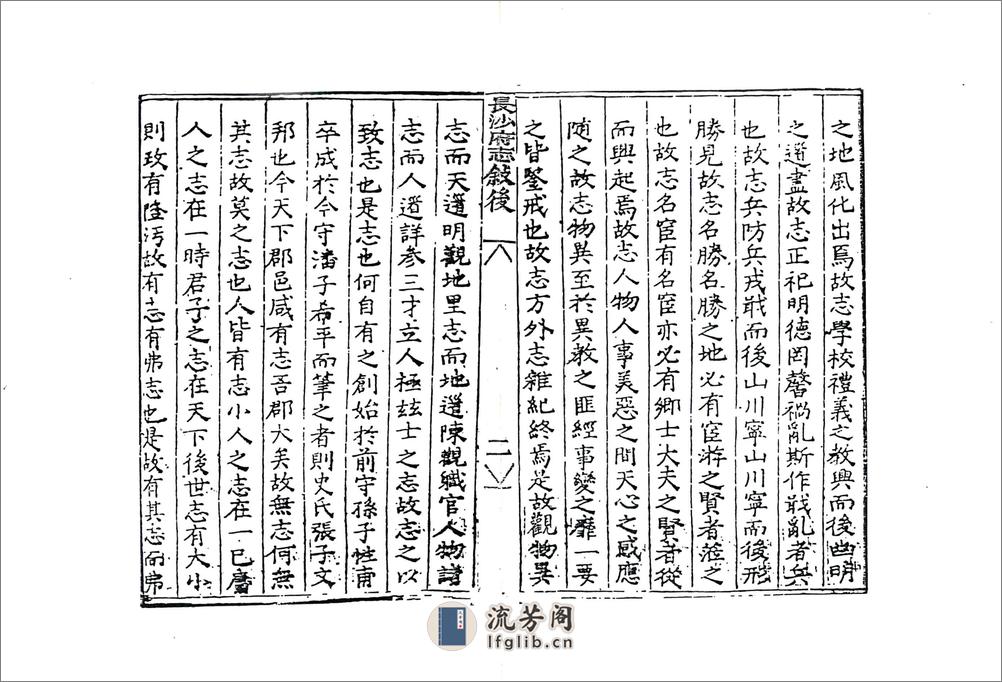 之地風化出焉故志學校禮義之教興而後幽明
之道盡故志正祀明德罔馨禍亂斯作戢亂者兵
也故志兵防兵戎戢而後山川寧山川寧而後形
勝見故志名勝名勝之地必有宦游之賢者蒞之
也故志名宦有名宦亦必有鄉士大夫之賢者從
而興起焉故志人物人事美惡之間天心之感應
随之故志物異至於異教之匪經事變之靡一要
之皆鍳戒也故志方外志雜紀終焉是故觀物異
長沙府志敍後
六
二
志而天道明觀地里志而地道陳觀職官人物諸
志而人道詳参三才立人極玆士之志故志之以
致志也是志也何自有之創始於前守孫子甡甫
卒成於今守潘子希平而筆之者則史氏張子文
邦也今天下郡邑咸有志吾郡大矣故無志何無
其志故莫之志也人皆有志小人之志在一已庸
人之志在一時君子之志在天下後世志有大小
則致有隆汚故有志有弗志也是故有其志而弗
流芳阁
lfglib.cn